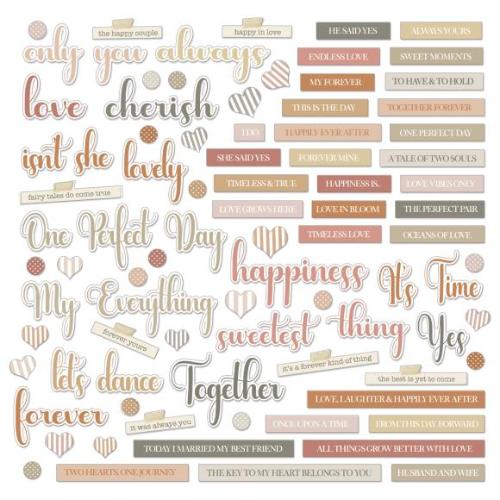 only you always
the happy couple
happy in love
love cherish
isn't she lovely
fairy tales do come true
One Perfect Day
My Everything
forever yours
let's dance
Together
forever
it was always you
happiness
It's Time
sweetest thing
Yes
it's a forever kind of thing
the best is yet to come
HE SAID YES
ALWAYS YOURS
ENDLESS LOVE
SWEET MOMENTS
MY FOREVER
TO HAVE & TO HOLD
THIS IS THE DAY
TOGETHER FOREVER
I DO
HAPPILY EVER AFTER
ONE PERFECT DAY
SHE SAID YES
FOREVER MINE
A TALE OF TWO SOULS
TIMELESS & TRUE
HAPPINESS IS..
LOVE VIBES ONLY
LOVE GROWS HERE
LOVE IN BLOOM
THE PERFECT PAIR
TIMELESS LOVE
OCEANS OF LOVE
LOVE, LAUGHTER & HAPPILY EVER AFTER
ONCE UPON A TIME
FROM THIS DAY FORWARD
TODAY I MARRIED MY BEST FRIEND
ALL THINGS GROW BETTER WITH LOVE
TWO HEARTS, ONE JOURNEY
THE KEY TO MY HEART BELONGS TO YOU
HUSBAND AND WIFE